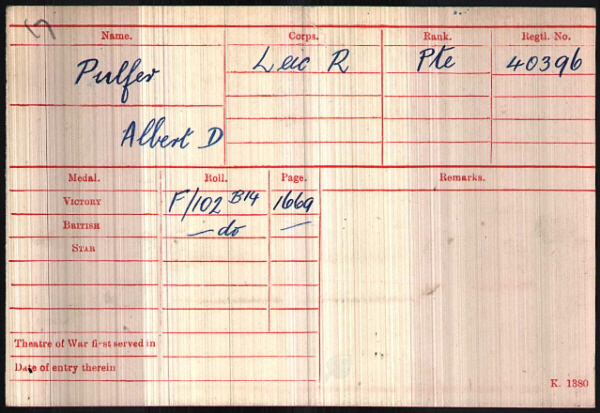 Name. Corps. Rank. Regtl. No.
Pulfer Leic R Pte 40396
Albert D
Medal. Roll. Page. Remarks.
VICTORY F/102 B14 1669
BRITISH — do —
STAR
Theatre of War first served in
Date of entry therein
K. 1380